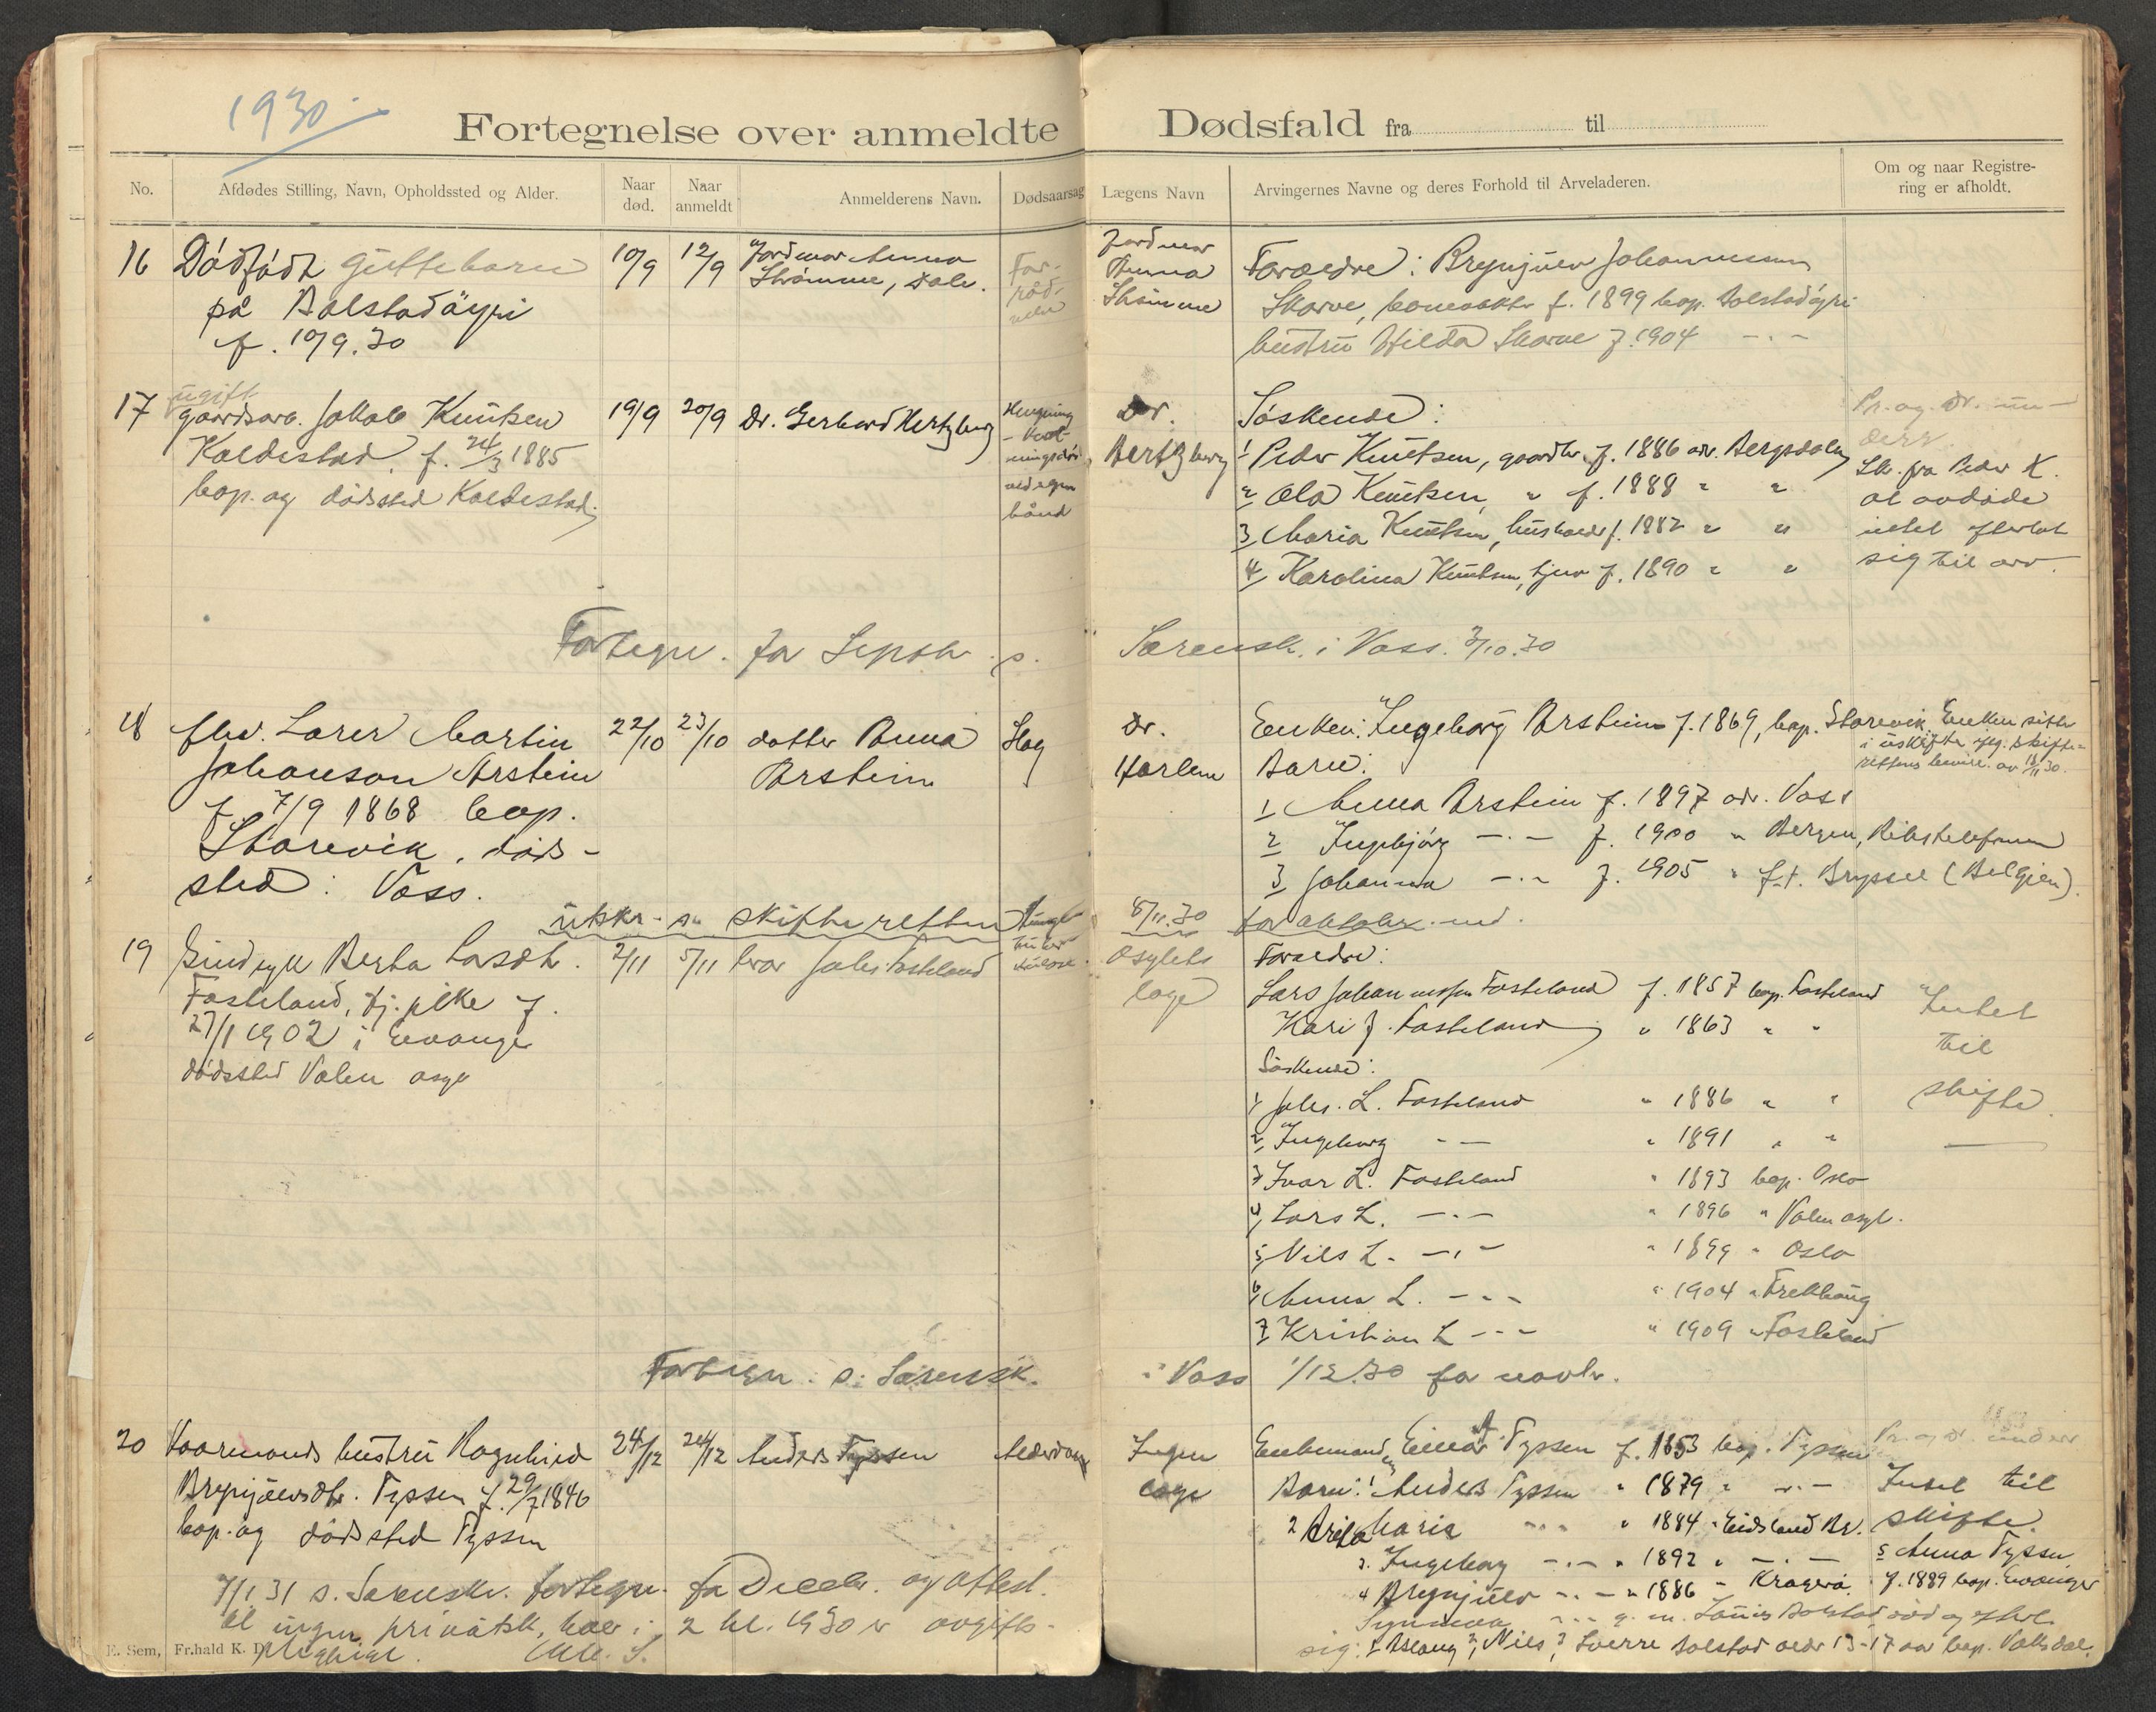 1930
Fortegnelse over anmeldte Dødsfald fra til
No. Afdødes Stilling, Navn, Opholdssted og Alder. Naar død. Naar anmeldt Anmelderens Navn. Dødsaarsag Lægens Navn Arvingernes Navne og deres Forhold til Arveladeren. Om og naar Registrering er afholdt.
16 Dödfödt guttebarn
på Bolstadöyri
f. 10/9.30
10/9 12/9 Jordmor Anna
Strömme, Dale.
Jordmor
Anna
Strömme
Forældre: Brynjulv Johannessen
Skorve, f. 1899 bop. Bolstadöyri
hustru Hilda Skorve f. 1904 -.-
17 ugift
gaardsarb. Jakob Knutsen
Kaldestad, f. 24/3 1885
bop. og dödssted Kaldestad.
19/9 20/9 Dr. Gerhard Hertzberg
Hengning
ved egen
hånd
Dr.
Hertzberg
Söskende:
1 Peder Knutsen, gaardbr. f. 1886 adr. Bergsdalen
2 Ola Knutsen, " f. 1888 " "
3 Maria Knutsen, f. 1882 " "
4 Karolina Knutsen, tjen f. 1890 " "
Pr. og Dr. un-
derr.
Skr. fra Peder K.
at avdöde
intet efterlot
sig til arv.
Fortegn. for Septbr. s. Sorensk. i Voss. 3/10.30
18 fhv. Lærer Martin
Johanson Arstein
f 7/9 1868 bop.
Storevik, död-
sted: Voss.
22/10 23/10 datter Anna
Arstein
Slag
Dr.
Harlem
Enken: Ingeborg Arstein f. 1869, bop. Storevik
Barn:
1 Anna Arstein f. 1897 adr. Voss
2 Ingebjörg -.- f. 1900 " Bergen, Rikstelefonen
3 Johanna -.- f. 1905 " f.t. Bryssel (Belgien).
Enken sitter
i uskifte ifg. skifte-
rettens bevill. av 18/11 30.
utskr. s. skifteretten 5/11.30 for oktober md.
19 Sindsyk Berta Larsdtr.
Fosteland, tj.pike f.
27/1 1902 i Evanger
dödssted Valen asyl
2/11 5/11 bror Johs. Fosteland
Lunge
tuber
kulose.
Asylets
læge
Foreldre:
Lars Johannessen Fosteland f. 1857 bop. Fosteland
Kari J. Fosteland " 1863 " "
Söskende:
1 Johs. L. Fosteland " 1886 " "
2 Ingeborg -.- " 1891 " "
3 Ivar L. Fosteland " 1893 bop. Oslo
4 Lars L. -.- " 1896 " Valen asyl.
5 Nils L. -.- " 1899 " Oslo
6 Anna L. -.- " 1904 " Trekhaug
7 Kristian L -.- " 1909 " Fosteland
Intet
til
skifte.
Fortegn. s. Sorensk. i Voss 1/12.30 for novbr.
20 Kaarmands hustru Ragnhild
Brynjulvsdtr. Fyssen f. 29/7 1846
bop. og dödssted Fyssen
24/12 24/12 Anders Fyssen
Alderdom
Ingen
læge
Enkemand Einar A. Fyssen f. 1853 bop. Fyssen
Barn: 1 Anders Fyssen " 1879 " -.-
2 Brita Maria -.- " 1884 " Eidsland Br.
3. Ingeborg -.- " 1892 " -.-
4 Brynjulv -.- " 1886 " Kragerö
5 Anna Fyssen,
f. 1889 bop. Evanger
Pr. og dr. underr
Intet til
skifte.
g. m. Bolstad död og efterl.
sig: 1 Aslaug, 2, Nils, 3 Sverre Bolstad alder 13-17 aar bop. Vaksdal.
7/1 31 s. Sorenskr. fortegn. for Decbr. og attest.
at ingen privatsk. boer i 2 hl. 1930 er avgifts-
pligtige.
E. Sem, Fr.hald K. D.